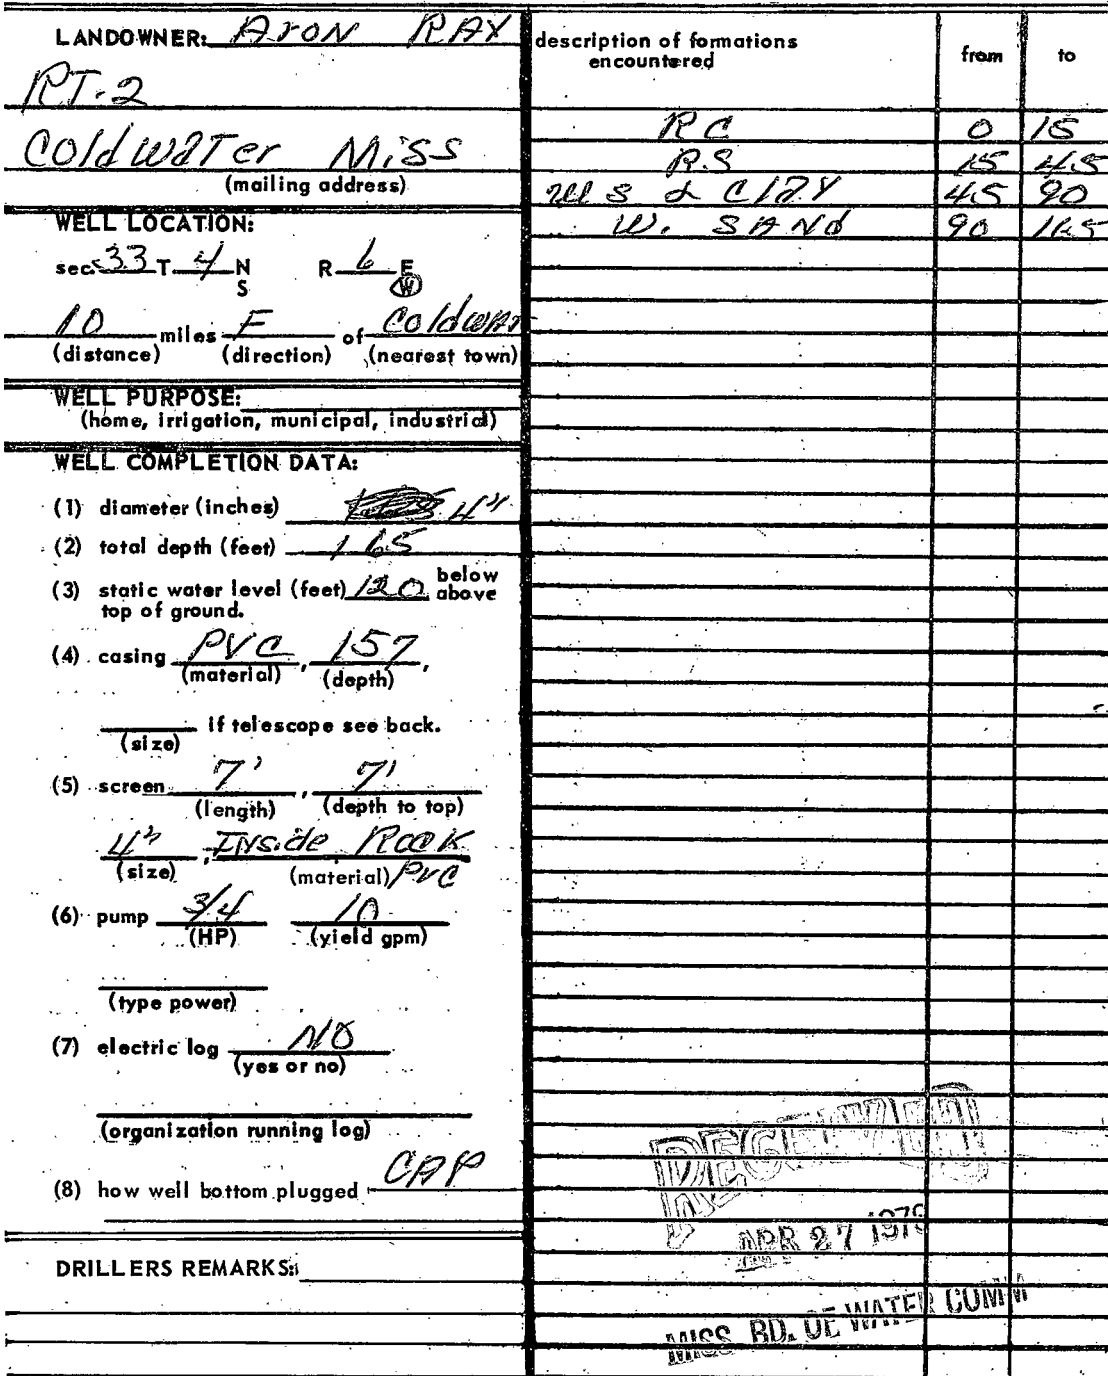 LANDOWNER: Aron RAY
RT-2
Coldwater Miss
(mailing address)
WELL LOCATION:
sec. 33 T 4 N R 6 E
S W
10 miles E of Coldwa
(distance) (direction) (nearest town)
WELL PURPOSE:
(home, irrigation, municipal, industrial)
WELL COMPLETION DATA:
(1) diameter (inches) 4"
(2) total depth (feet) 165
(3) static water level (feet) 120 below
above
top of ground.
(4) casing PVC, 157,
(material) (depth)
if telescope see back.
(size)
(5) screen 7', 7'
(length) (depth to top)
4", Inside Rock
(size) (material) PVC
(6) pump 3/4 10
(HP) (yield gpm)
(type power)
(7) electric log NO
(yes or no)
(organization running log)
(8) how well bottom plugged CAP
DRILLERS REMARKS:
description of formations
encountered from to
RC 0 15
R.S 15 45
W S & CLAY 45 90
W. SAND 90 165
RECEIVED
APR 27 197
MISS. BD. OF WATER COMM